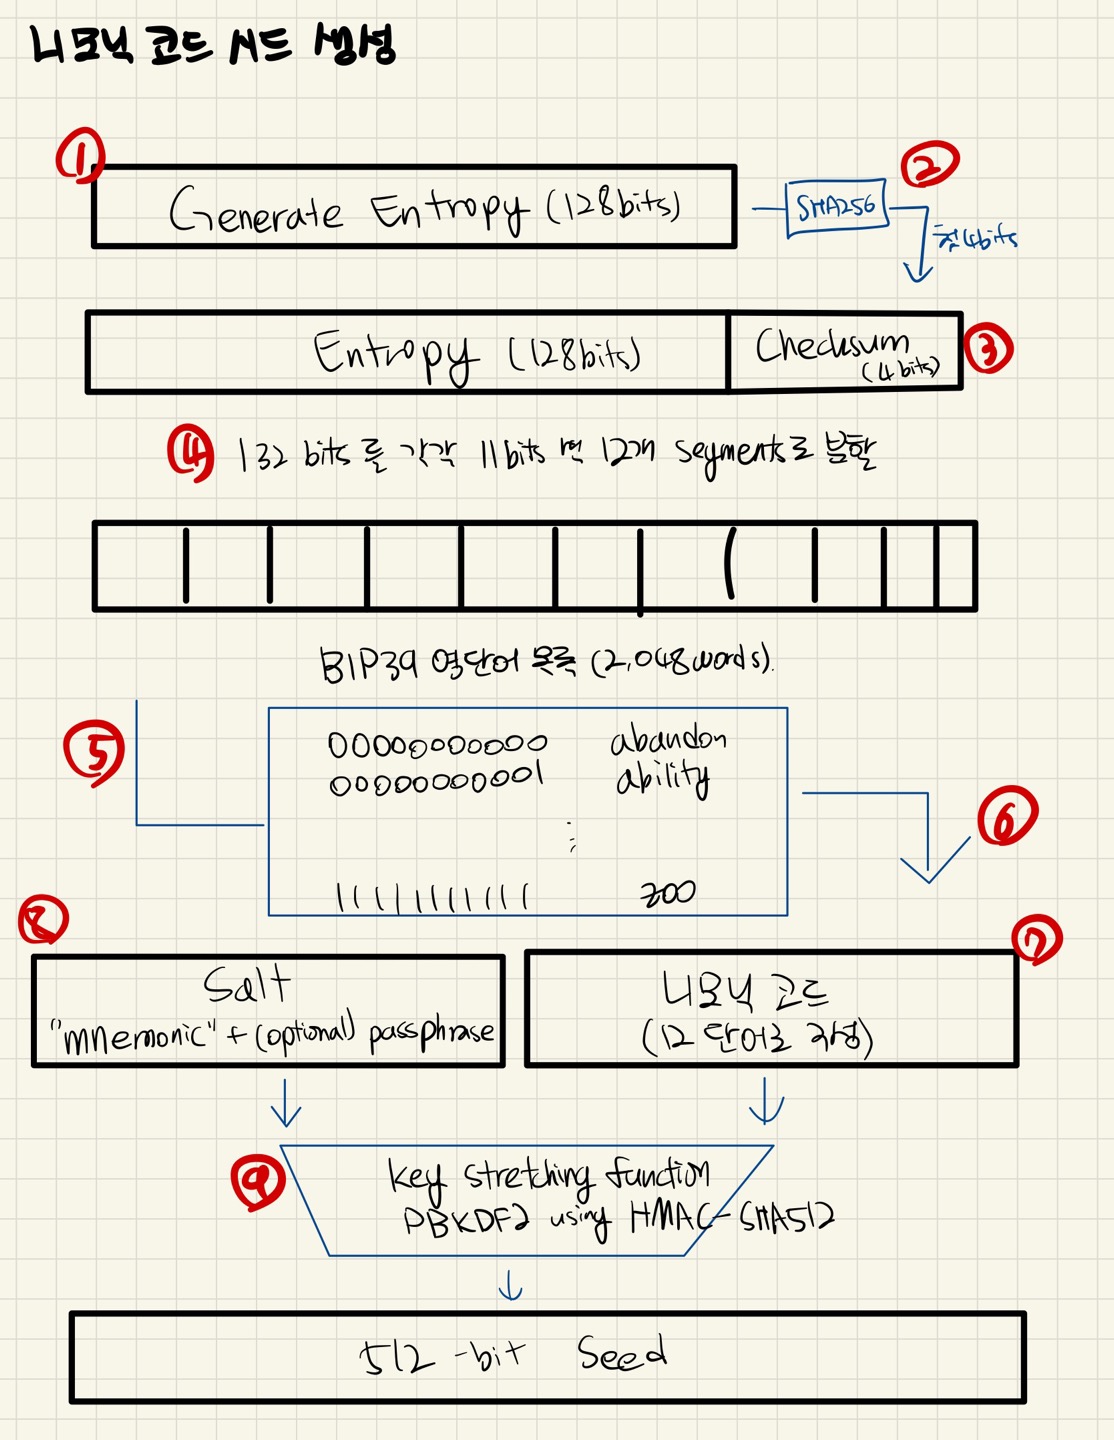 니모닉 코드 시드 생성
①
Generate Entropy (128bits)
SHA256
②
첫 4bits
Entropy (128bits)
Checksum
(4 bits)
③
④ 132 bits 를 각각 11bits 씩 12개 segments로 분할
BIP39 영단어 목록 (2,048words).
⑤
00000000000 abandon
00000000001 ability
:
;
11111111111 zoo
⑥
⑧
Salt
"mnemonic" + (optional) passphrase
⑦
니모닉 코드
(12 단어로 구성)
⑨
key stretching function
PBKDF2 using HMAC-SHA512
512-bit Seed